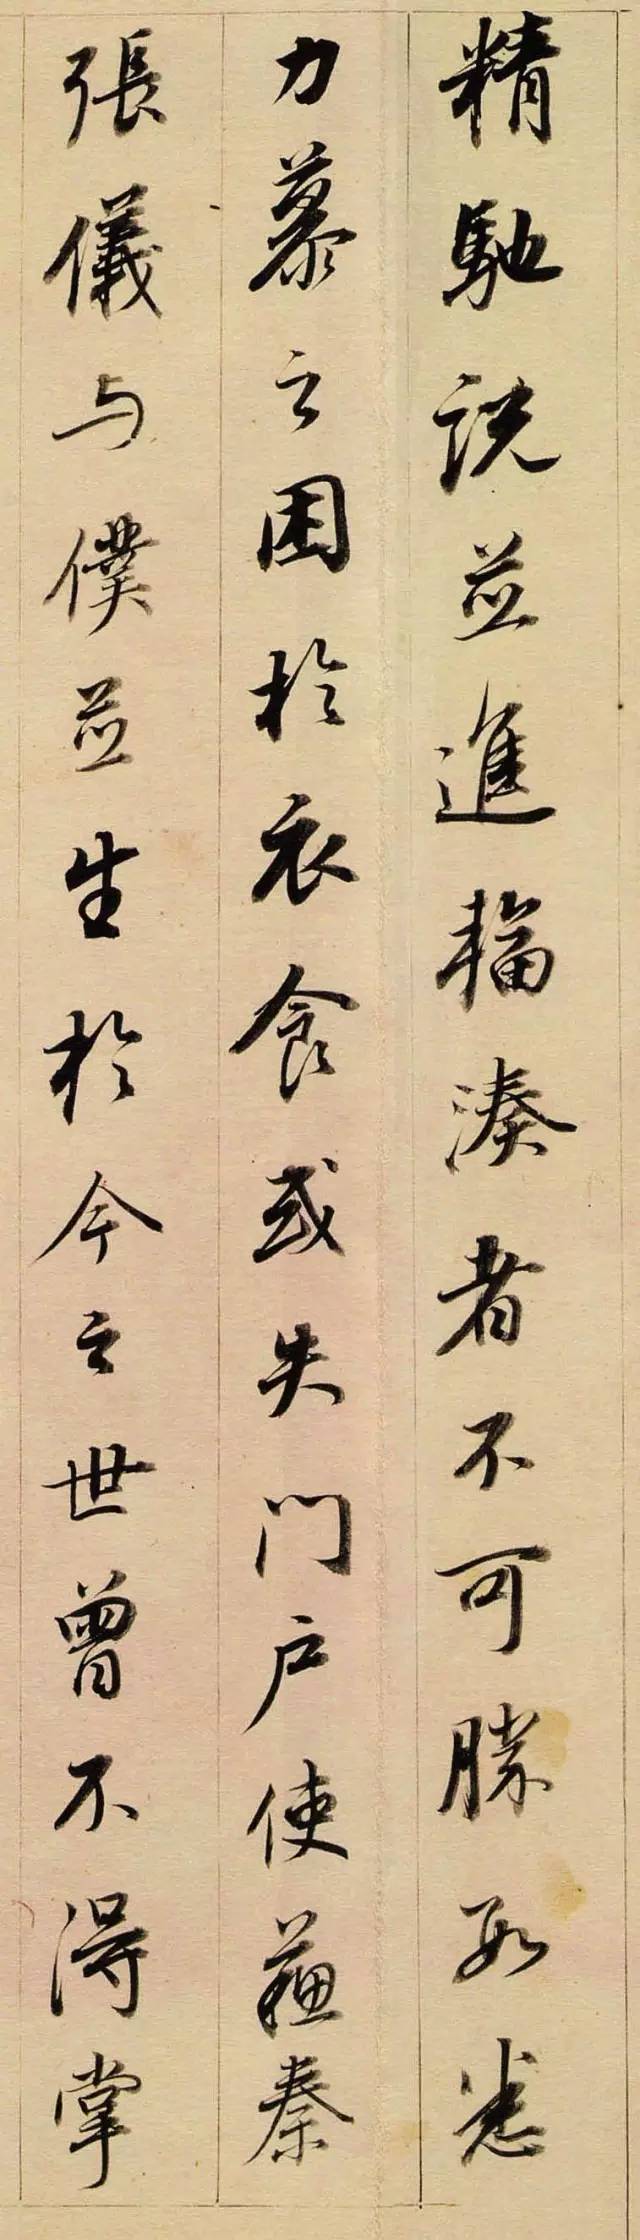 精馳説並進輻湊者不可勝數悉
力慕之困於衣食或失門戶使蘇秦
張儀与僕並生於今之世曾不得掌